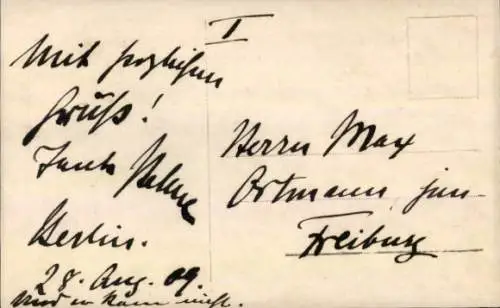 I
Mit herzlichem
Gruß!
Berlin.
28. Aug. 09.
Herrn Max
Ortmann jun.
Freiburg